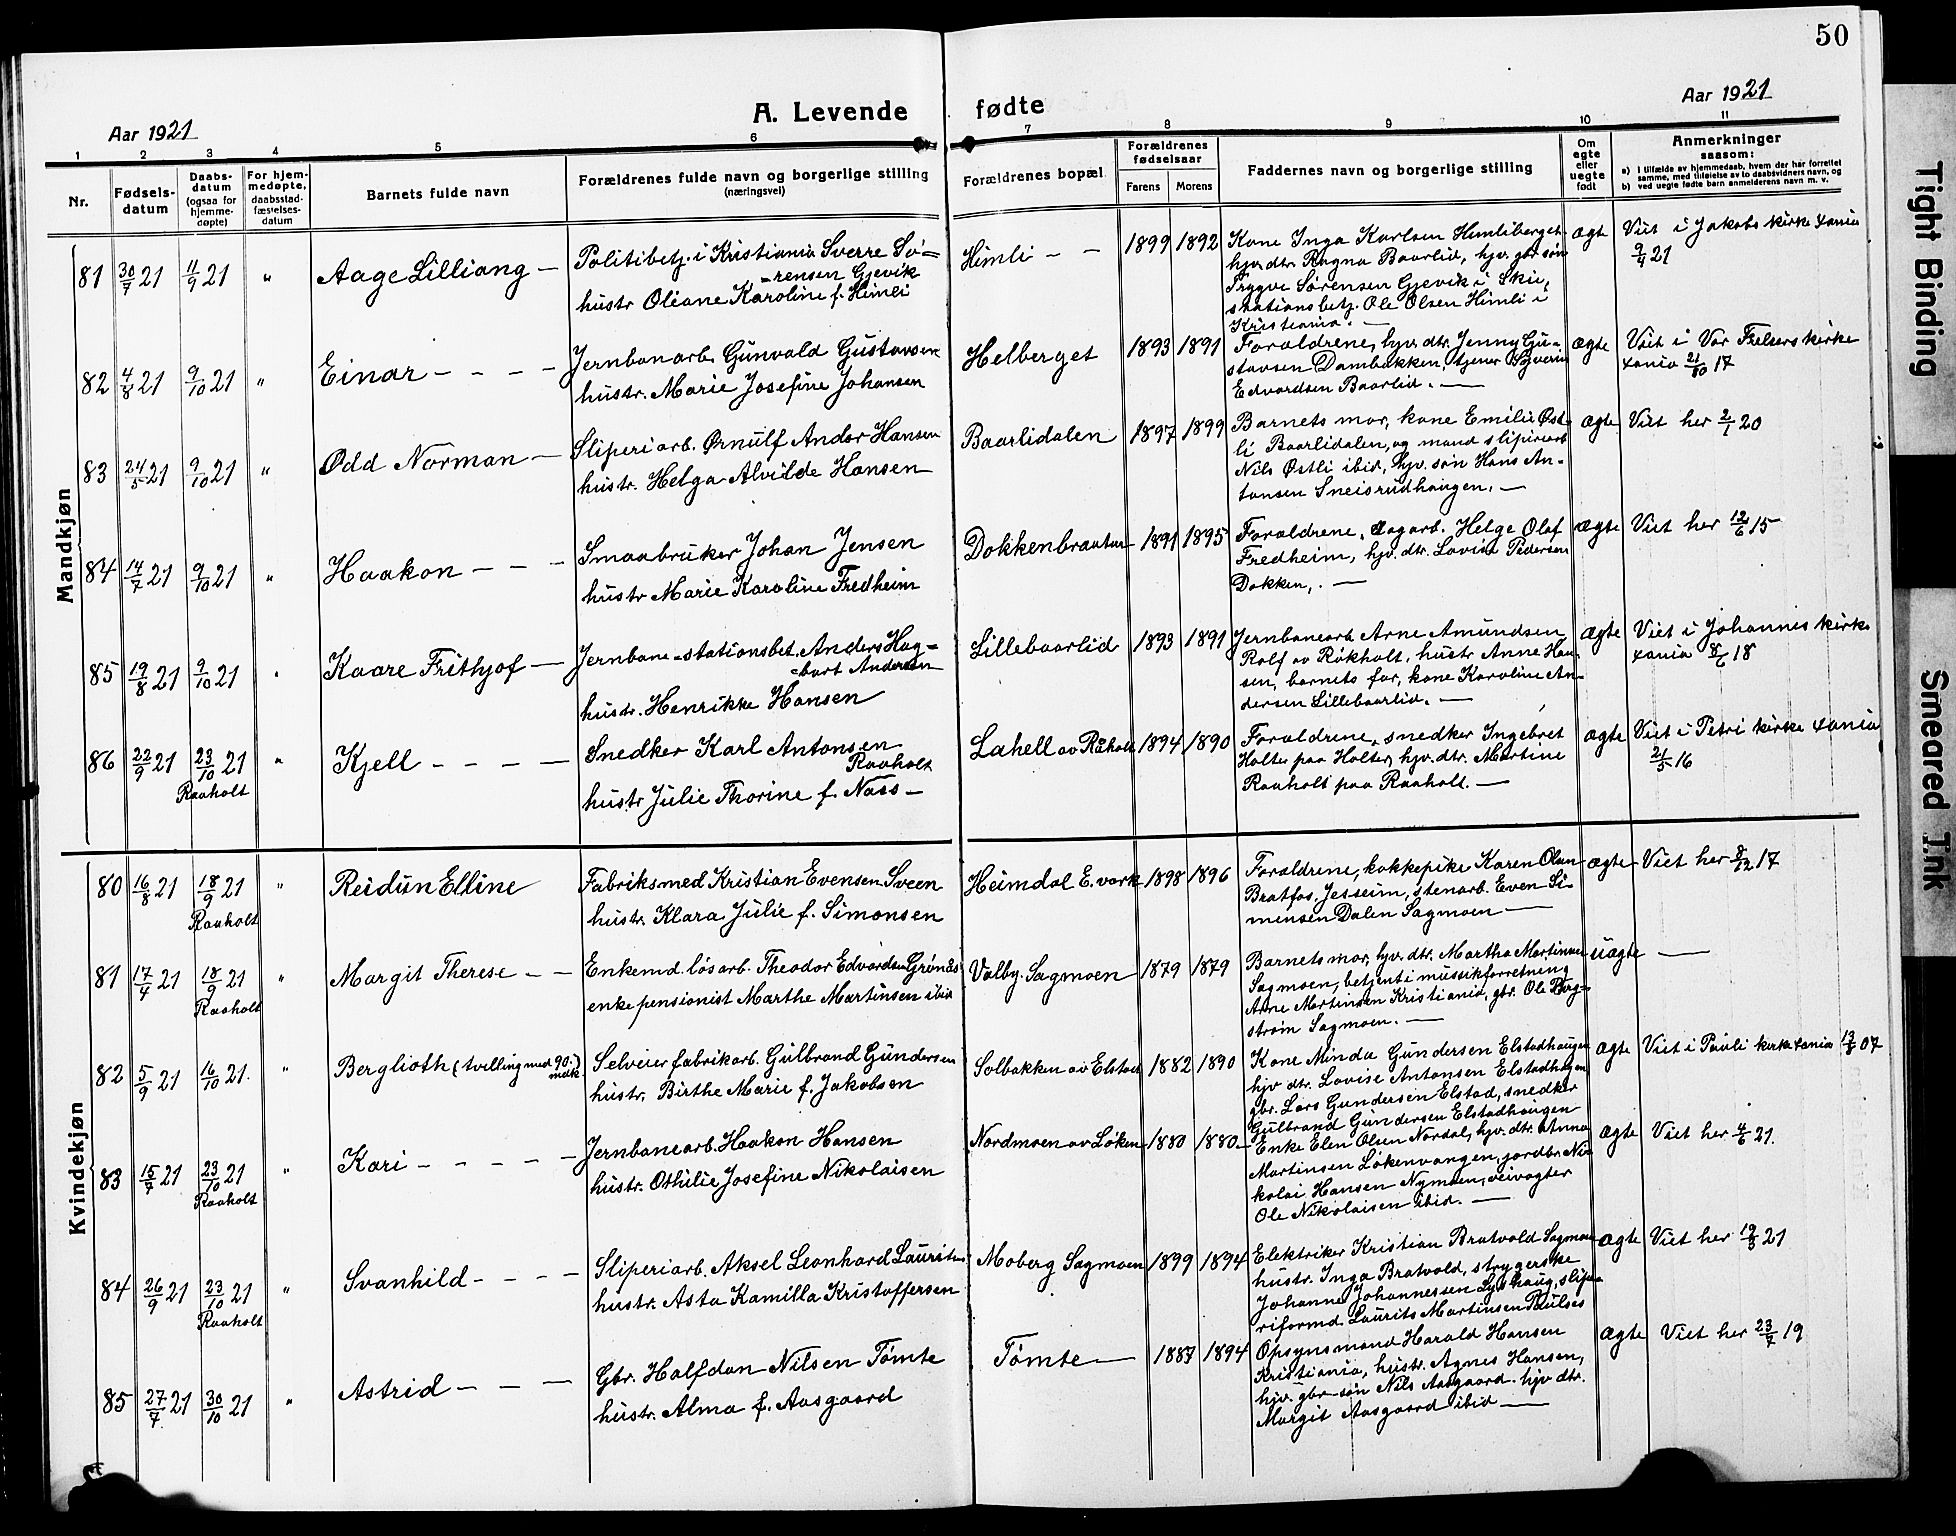 50
Aar 1921
A. Levende fødte
Aar 1921
1 2 3 4 5 6 7 8 9 10 11
Nr.
Fødsels-
datum
Daabs-
datum
(ogsaa for
hjemme-
døpte)
For hjem-
medøpte,
daabsstad-
fæstelses-
datum
Barnets fulde navn
Forældrenes fulde navn og borgerlige stilling
(næringsvei)
Forældrenes bopæl
Forældrenes
fødselsaar
Farens Morens
Faddernes navn og borgerlige stilling
Om
egte
eller
uegte
født
Anmerkninger
saasom:
a) I tilfælde av hjemmedaab, hvem der har forrettet
samme, med tilføielse av to daabsvidners navn, og
b) ved uegte fødte barn anmelderens navn m. v.
Mandkjøn
81 30/7 21 11/9 21 " Aage Lilliang —
Politibetj. i Kristiania Sverre Sø=
=rensen Gjevik
hustr Oliane Karoline f. Himli
Himli — — 1899 1892
Kone Inga Karlsen Himliberget
hjv. dtr. Ragna Baarlid, hjv. gbr søn
Trygve Sørensen Gjevik i Ski,
stationsbetj. Ole Olsen Himli i
Kristiania. —
ægt Viet i Jakobs kirke Xania
9/4 21
82 4/8 21 9/10 21 " Einar - - - -
Jernbanarb. Gunvald Gustavsen
hustr. Marie Josefine Johansen
Helberget 1893 1891
Forældrene, hjv. dtr. Jenny Gu-
stavsen Dambakken, tjener Syverin
Edvardsen Baarlid. —
ægte Viet i Vor Frelsers kirke
Xania 21/10 17
83 24/5 21 9/10 21 " Odd Norman —
Sliperiarb. Ørnulf Andor Hansen
hustr. Helga Alvilde Hansen
Baarlidalen 1897 1899
Barnets mor, kone Emilie Øst-
li Baarlidalen, og mand sliperiarb
Nils Østli ibid, hjv. søn Hans An-
tonsen Sneisrudhaugen. —
ægte Viet her 2/1 20
84 14/7 21 9/10 21 " Haakon - - -
Smaabruker Johan Jensen
hustr Marie Karoline Fredheim
Dokkenbraatan 1891 1895
Forældrene, sagarb. Helge Olaf
Fredheim, hjv. dtr. Lovise Pedersen
Dokken, . —
ægte Viet her 12/6 15
85 19/8 21 9/10 21 " Kaare Frithjof —
Jernbane-stationsbet. Anders Hag=
=bart Andersen
hustr. Henrikke Hansen
Lillebaarlid 1893 1891
Jernbanearb. Arne Amundsen
Rolf av Røkholt, hustr Anne Han-
sen, barnets far, kone Karoline An-
dersen Lillebaarlid. —
ægte Viet i Johannes kirke
Xania 8/6 18
86 22/9 21 23/10 21 " Kjell - - - -
Raaholt
Snedker Karl Antonsen
Raaholt
hustr Julie Thorine f. Næss —
Lahell av Raaholt 1894 1890
Forældrene, snedker Ingebret
Holter paa Holter, hjv. dtr. Martine
Raaholt paa Raaholt. —
ægte Viet i Petri kirke Xania
21/5 16
Kvindekjøn
80 16/8 21 18/9 21 " Reidun Elline
Raaholt
Fabriksmed Kristian Evensen Sveen
hustr. Klara Julie f. Simonsen
Heimdal E. verk 1898 1896
Forældrene, kokkepike Karen Olsen
Bratfos, Jesseim, stenarb. Even Si-
mensen Dalen Sagmoen —
ægte Viet her 8/12 17
81 17/4 21 18/9 21 " Margit Therese — —
Raaholt
Enkemd. løsarb. Theodor Edvardsen Grønaas
enkepensionist Marthe Martinsen ibid
Valby. Sagmoen 1879 1879
Barnets mor, hjv. dtr. Martha Martinsen
Sagmoen, betjent i musikforretning
Arne Martinsen Kristiania, gbr. Ole Berg-
strøm Sagmoen. —
uægte —
82 5/9 21 16/10 21. " Berglioth (tvilling med 90 i)
mdk
Selveier fabrikarb. Gulbrand Gundersen
hustr. Birthe Marie f. Jakobsen
Solbakken av Elstad 1882 1890
Kone Minda Gundersen Elstadhaugen
hjv dtr. Lovise Antonsen Elstadhagen
gbr. Lars Gundersen Elstad, snedker
Gulbrand Gundersen Elstadhaugen
ægte Viet i Pauli kirke Xania 13/8 07
83 15/7 21 23/10 21 " Kari - - - - -
Raaholt
Jernbanearb. Haakon Hansen
hustr. Othilie Josefine Nikolaisen
Nordmoen av Løken 1880 1880
Enke Elen Olsen Nordal, hjv. dtr. Anna
Martinsen Løkenvangen, jordbr. Ni-
kolai Hansen Nymoen, veivogter
Ole Nikolaisen ibid. —
ægte Viet her 4/6 21.
84 26/9 21 23/10 21 " Svanhild - - - -
Raaholt
Sliperiarb. Aksel Leonhard Lauritsen
hustr. Asta Kamilla Kristoffersen
Moberg Sagmoen 1899 1894
Elektriker Kristian Bratvold Sagmoen
hustr. Inga Bratvold, strygerske
Johanne Johannessen Lyshaug, slipe-
riformd Laurits Martinsen Paulses
ægte Viet her 19/3 21
85 27/7 21 30/10 21 " Astrid - - -
Gbr. Halfdan Nilsen Tømte
hustr. Alma f. Aasgaard
Tømte — 1887 1894
Opsynsmand Harald Hansen
Kristiania, hustr. Agnes Hansen,
hjv. gbr-søn Nils Aasgaard. hjv dtr.
Margit Aasgaard ibid —
ægte Viet her 23/7 19
Tight Binding
Smeared Ink